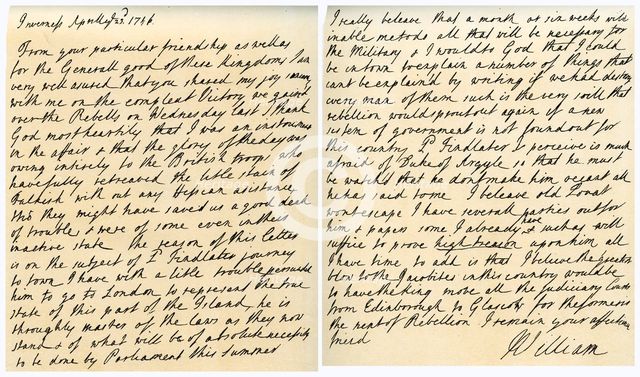 Inverness Apr 23d. 1746.
From your particular friendship as well as
for the Generall good of these Kingdoms I am
very well asured that you shared my joy
with me on the compleat Victory we gaind
over the Rebells on Wednesday last I thank
God most heartily that I was an instrument
in the affair & that the glory of the day was
owing intirely to the British troops who
have fully retreaved the litle stain of
Falkirk with out any Hessian asistance
tho they might have saved us a good deal
of trouble & were of some even in their
inactive state the reason of this letter
is on the subject of Ld Findlaters journey
to town I have with a litle trouble persuaded
him to go to London to represent the true
state of this part of the Island he is
throughly master of the laws as they now
stand & of what will be of absolute necessity
to be done by Parliament this Summer
I really beleave that a month or six weeks will
inable me to do all that will be necessary for
the Military & I would to God that I could
be in town to explain a number of things that
cant be explaind by writing if we had destroy
every man of them such is the very soil that
rebellion would sprout out again if a new
sistem of government is not found out for
this country Ld Findlater I perceive is much
afraid of Duke of Argyle so that he must
be watchd that he dont make him recant all
he has said to me I beleave old Lovat
wont escape I have severall parties out for
him & papers some I already have & such as will
suffice to prove high treason upon him all
I have time to add is that I believe the greatest
blow to the Jacobites in this country would be
to have the King move all the Judiciary Courts
from Edinborough to Glascow for the former is
the nest of Rebellion I remain your affectionate
friend
William